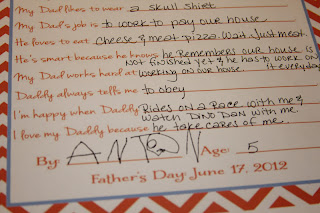 My Dad likes to wear a skull shirt
My Dad's job is to work to pay our house.
He loves to eat cheese & meat pizza. Wait. Just meat.
He's smart because he knows he Remembers our house is
not finished yet & he has to work on
My Dad works hard at working on our house. it everyday
Daddy always tells me to obey
I'm happy when Daddy Rides on a Race with me &
watch Dino Dan with me.
I love my Daddy because he take cares of me.
By: ANTON Age: 5
Father's Day: June 17, 2012